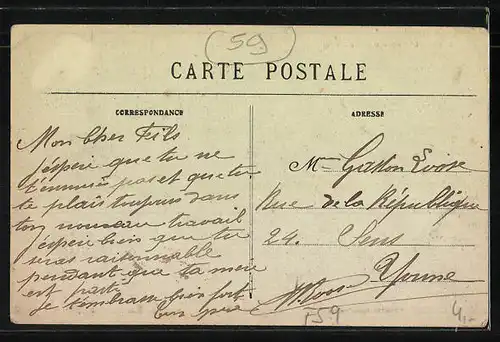 59
CARTE POSTALE
CORRESPONDANCE
ADRESSE
Mon Cher Fils
j'espère que tu ne
t'ennuies pas et que tu
te plais toujours dans
ton nouveau travail
j'espère bien que tu
seras raisonnable
pendant que ta mère
est partie
je t'embrasse bien fort
ton père
Mr Gaston
Rue de la République
24. Sens
Yonne
59
4,-